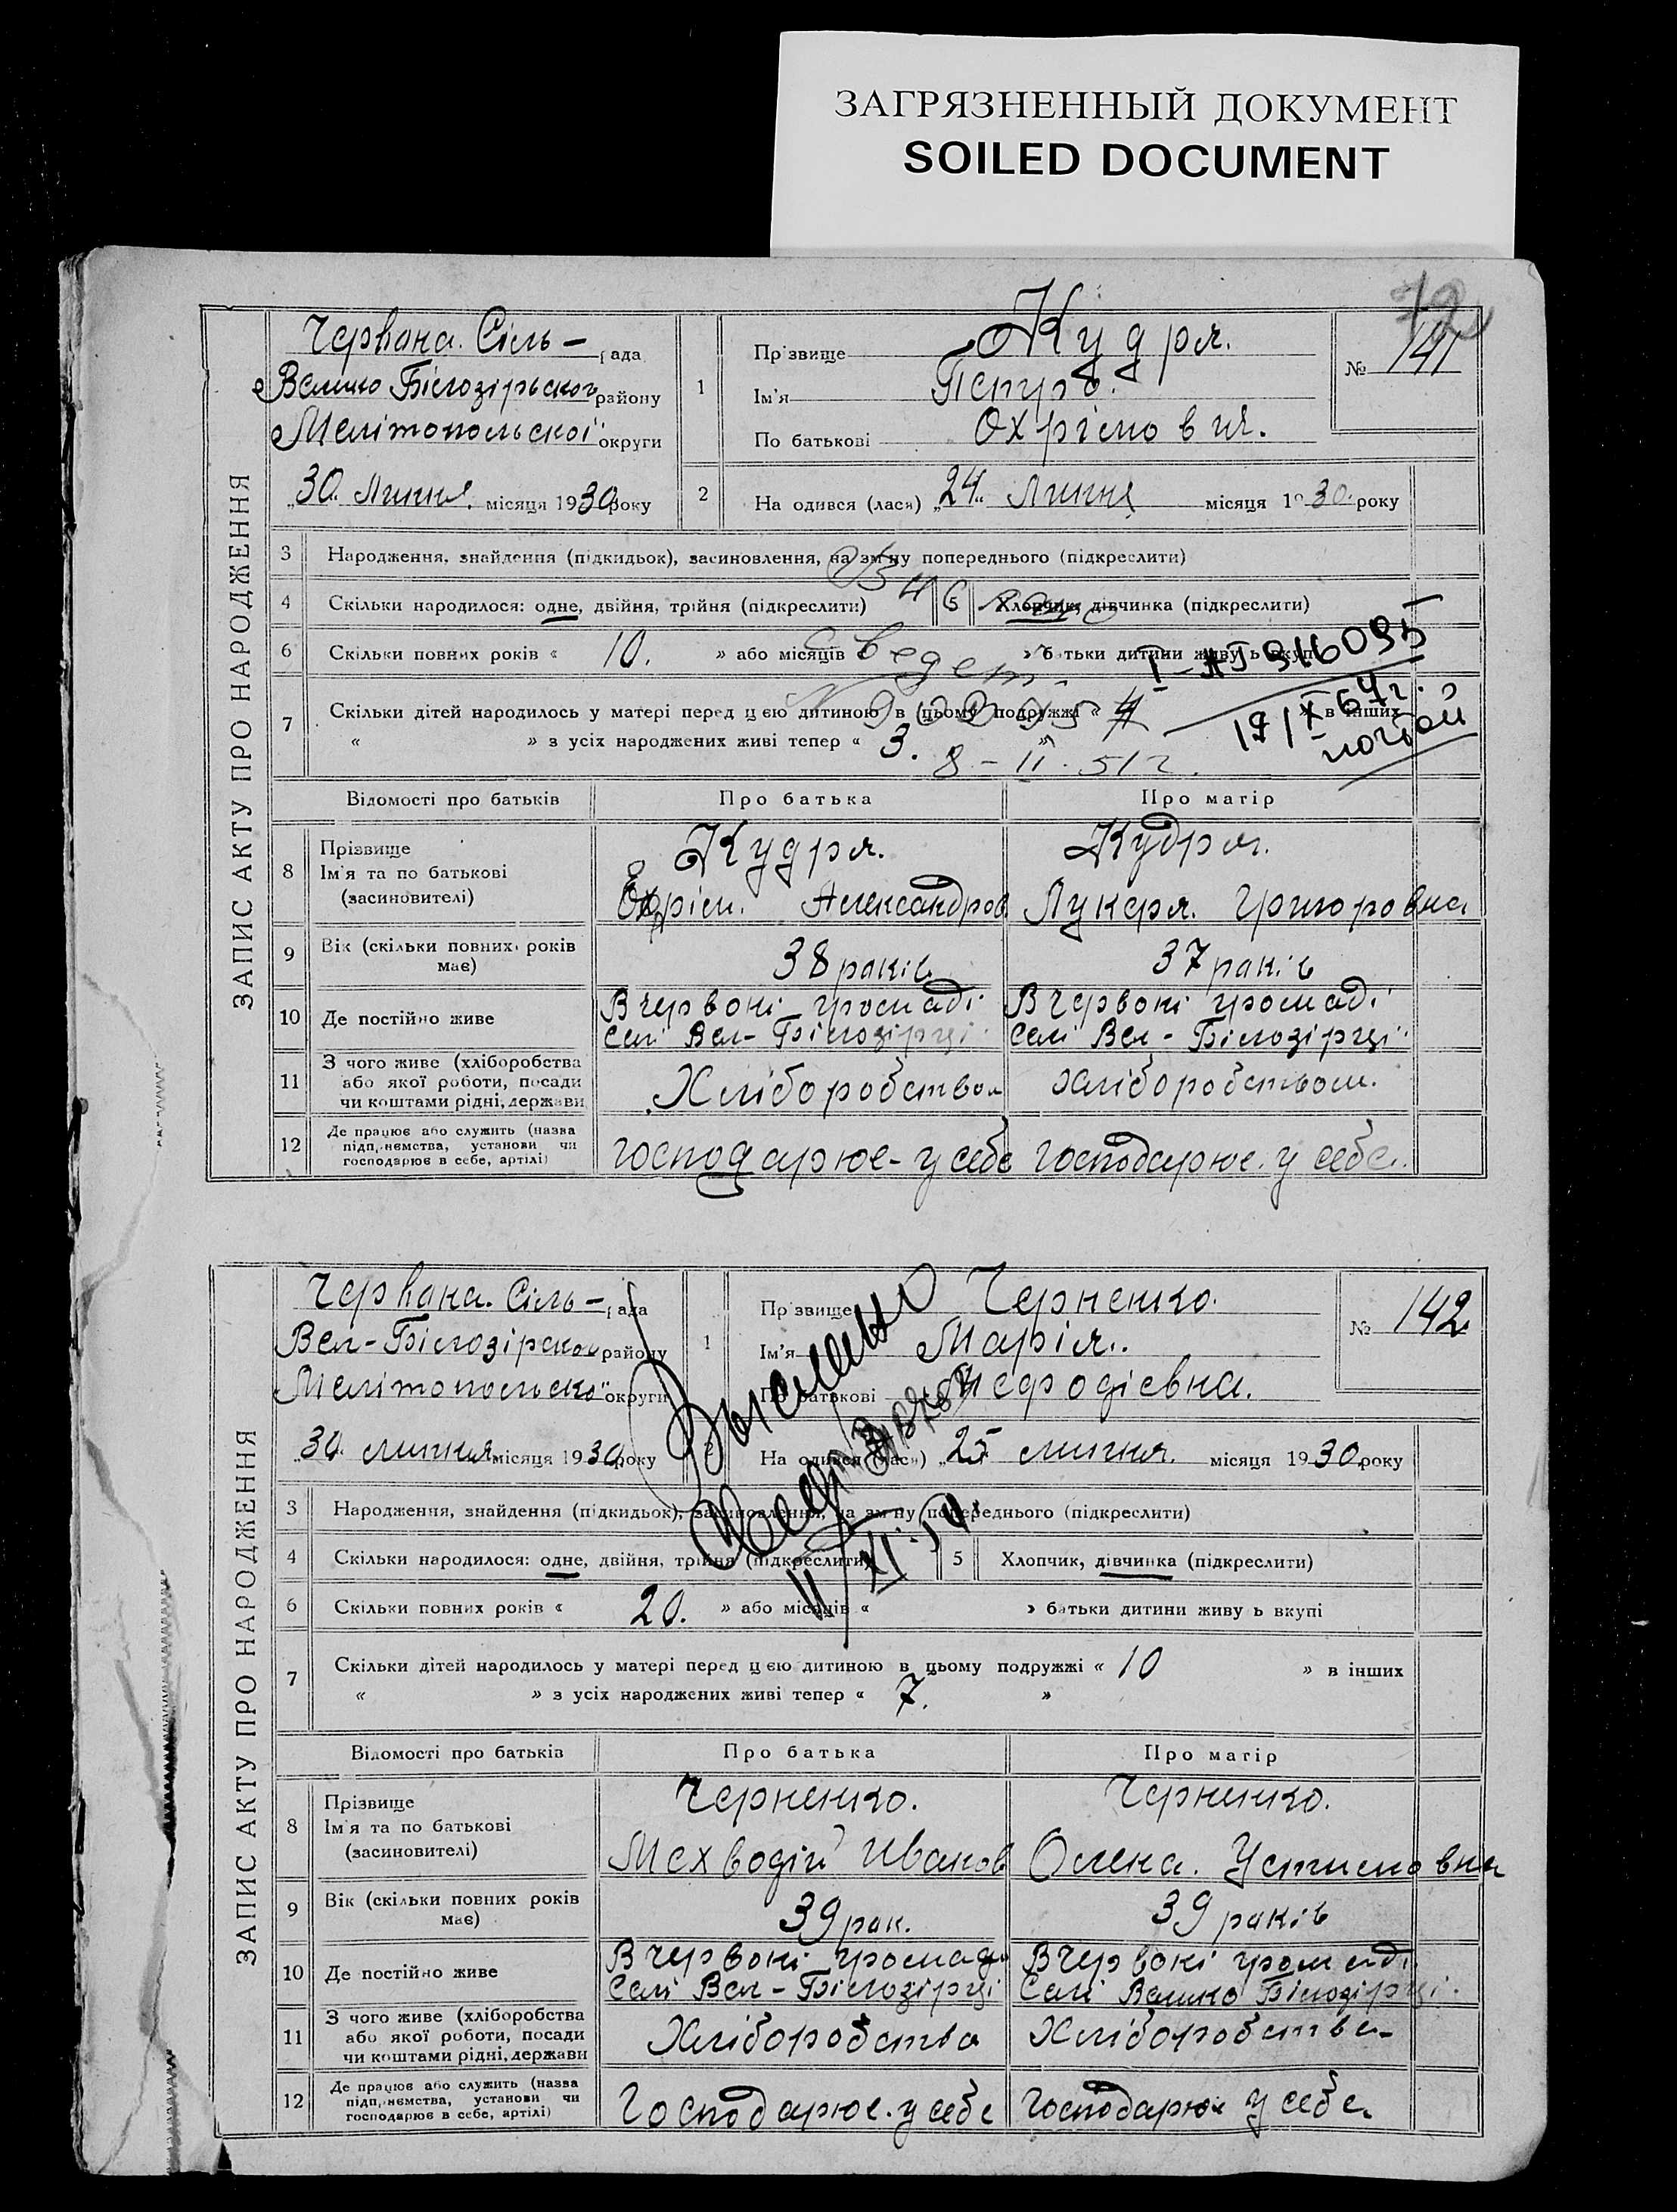 ЗАГРЯЗНЕННЫЙ ДОКУМЕНТ
SOILED DOCUMENT
72
ЗАПИС АКТУ ПРО НАРОДЖЕННЯ
Червона. Сіль- рада
Велико Білозірьског району
Мелітопольскої округи
"30. липня. місяця 1930 року
1 Прізвище Кудря.
Ім'я Петро.
По батькові Охрімович.
№ 141
2 На одився (лася) "24" липня місяця 1930. року
3 Народження, знайдення (підкидьок), засиновлення, на зміну попереднього (підкреслити)
4 Скільки народилося: одне, двійня, трійня (підкреслити)
5 Хлопчик, дівчинка (підкреслити)
6 Скільки повних років « 10. » або місяців « » батьки дитини живу ь вкупі
7 Скільки дітей народилось у матері перед цією дитиною в цьому подружжі « 4 » в інших
« » з усіх народжених живі тепер « 3. »
8-II.51г.
I-АЗ 916095
19/X 64г.
Відомості про батьків
Про батька
Про матір
8 Прізвище
Ім'я та по батькові
(засиновителі)
Кудря.
Охрім. Александров
Кудря.
Лукеря. Григоровна
9 Вік (скільки повних років
має)
38 раків
37 раків
10 Де постійно живе
В червоні громаді
Селі Вел-Білозірці
В червоні громаді
Селі Вел-Білозірці
11 З чого живе (хліборобства
або якої роботи, посади
чи коштами рідні, держави
Хліборобством
хліборобством.
12 Де працює або служить (назва
підприємства, установи чи
господарює в себе, артілі)
господарює-у себе
господарює. у себе.
ЗАПИС АКТУ ПРО НАРОДЖЕННЯ
Червона. Сіль- рада
Вел-Білозірског району
Мелітопольскої округи
"30. липня місяця 1930 року
1 Прізвище Черненко.
Ім'я Марія.
По батькові Мефодієвна.
№ 142
2 На одився (лася) "25 липня. місяця 1930. року
3 Народження, знайдення (підкидьок), засиновлення, на зміну попереднього (підкреслити)
4 Скільки народилося: одне, двійня, трійня (підкреслити)
5 Хлопчик, дівчинка (підкреслити)
6 Скільки повних років « 20. » або місяців « » батьки дитини живу ь вкупі
7 Скільки дітей народилось у матері перед цією дитиною в цьому подружжі « 10 » в інших
« » з усіх народжених живі тепер « 7. »
Відомості про батьків
Про батька
Про матір
8 Прізвище
Ім'я та по батькові
(засиновителі)
Черненко.
Мехводій Иванов
Черненко.
Олена. Устимовна
9 Вік (скільки повних років
має)
39 рак.
39 раків
10 Де постійно живе
В червоні громаді
Селі Вел-Білозірці
В червоні громаді
Селі Велико Білозірці.
11 З чого живе (хліборобства
або якої роботи, посади
чи коштами рідні, держави
Хліборобства
Хліборобства
12 Де працює або служить (назва
підприємства, установи чи
господарює в себе, артілі)
Господарює. у себе
господарює у себе.